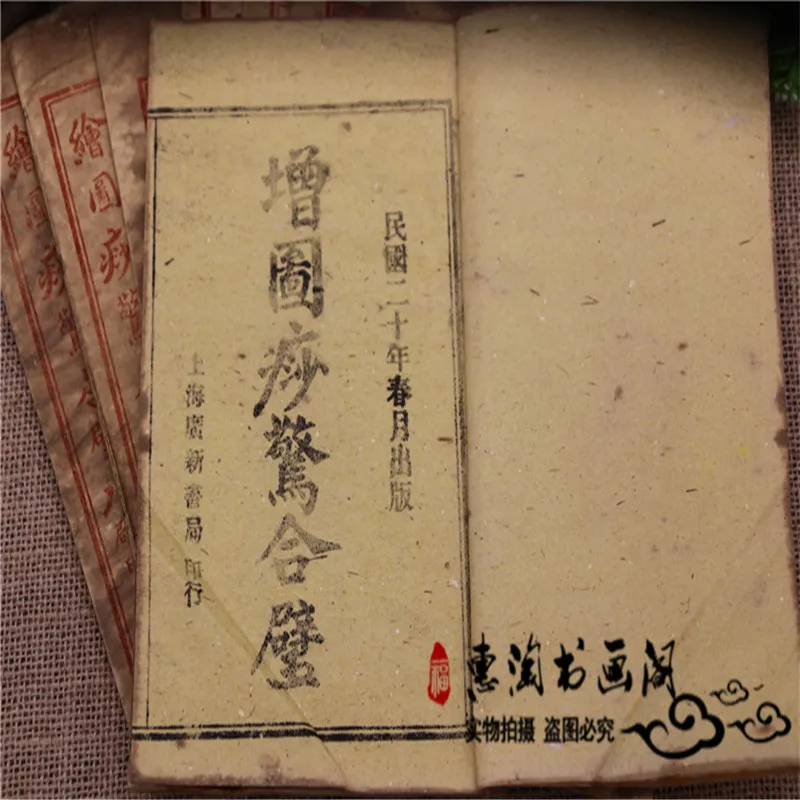 民國二十年春月出版
增圖痧驚合璧
上海廣新書局印行
繪圖痧驚
繪圖痧驚
福
惠淘书画阁
实物拍摄 盗图必究